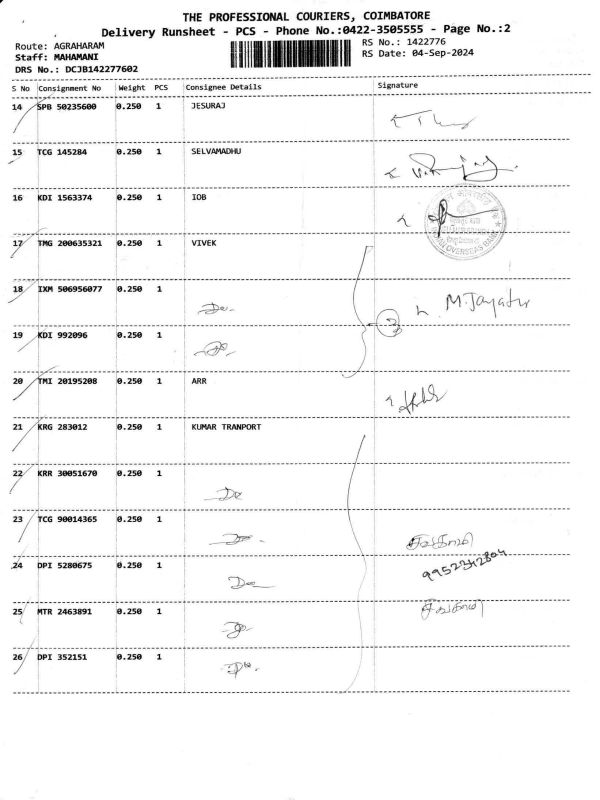 THE PROFESSIONAL COURIERS, COIMBATORE
Delivery Runsheet - PCS - Phone No.:0422-3505555 - Page No.:2
Route: AGRAHARAM
Staff: MAHAMANI
DRS No.: DCJB142277602
RS No.: 1422776
RS Date: 04-Sep-2024
S No Consignment No Weight PCS Consignee Details Signature
14 SPB 50235600 0.250 1 JESURAJ
15 TCG 145284 0.250 1 SELVAMADHU
16 KDI 1563374 0.250 1 IOB
INDIAN OVERSEAS BANK
17 TMG 200635321 0.250 1 VIVEK
18 IXM 506956077 0.250 1
3 M.Jayatu
19 KDI 992096 0.250 1
20 TMI 20195208 0.250 1 ARR
21 KRG 283012 0.250 1 KUMAR TRANPORT
22 KRR 30051670 0.250 1
23 TCG 90014365 0.250 1
சிவகாமி
24 DPI 5280675 0.250 1
9952342804
25 MTR 2463891 0.250 1
சிவகாமி
26 DPI 352151 0.250 1